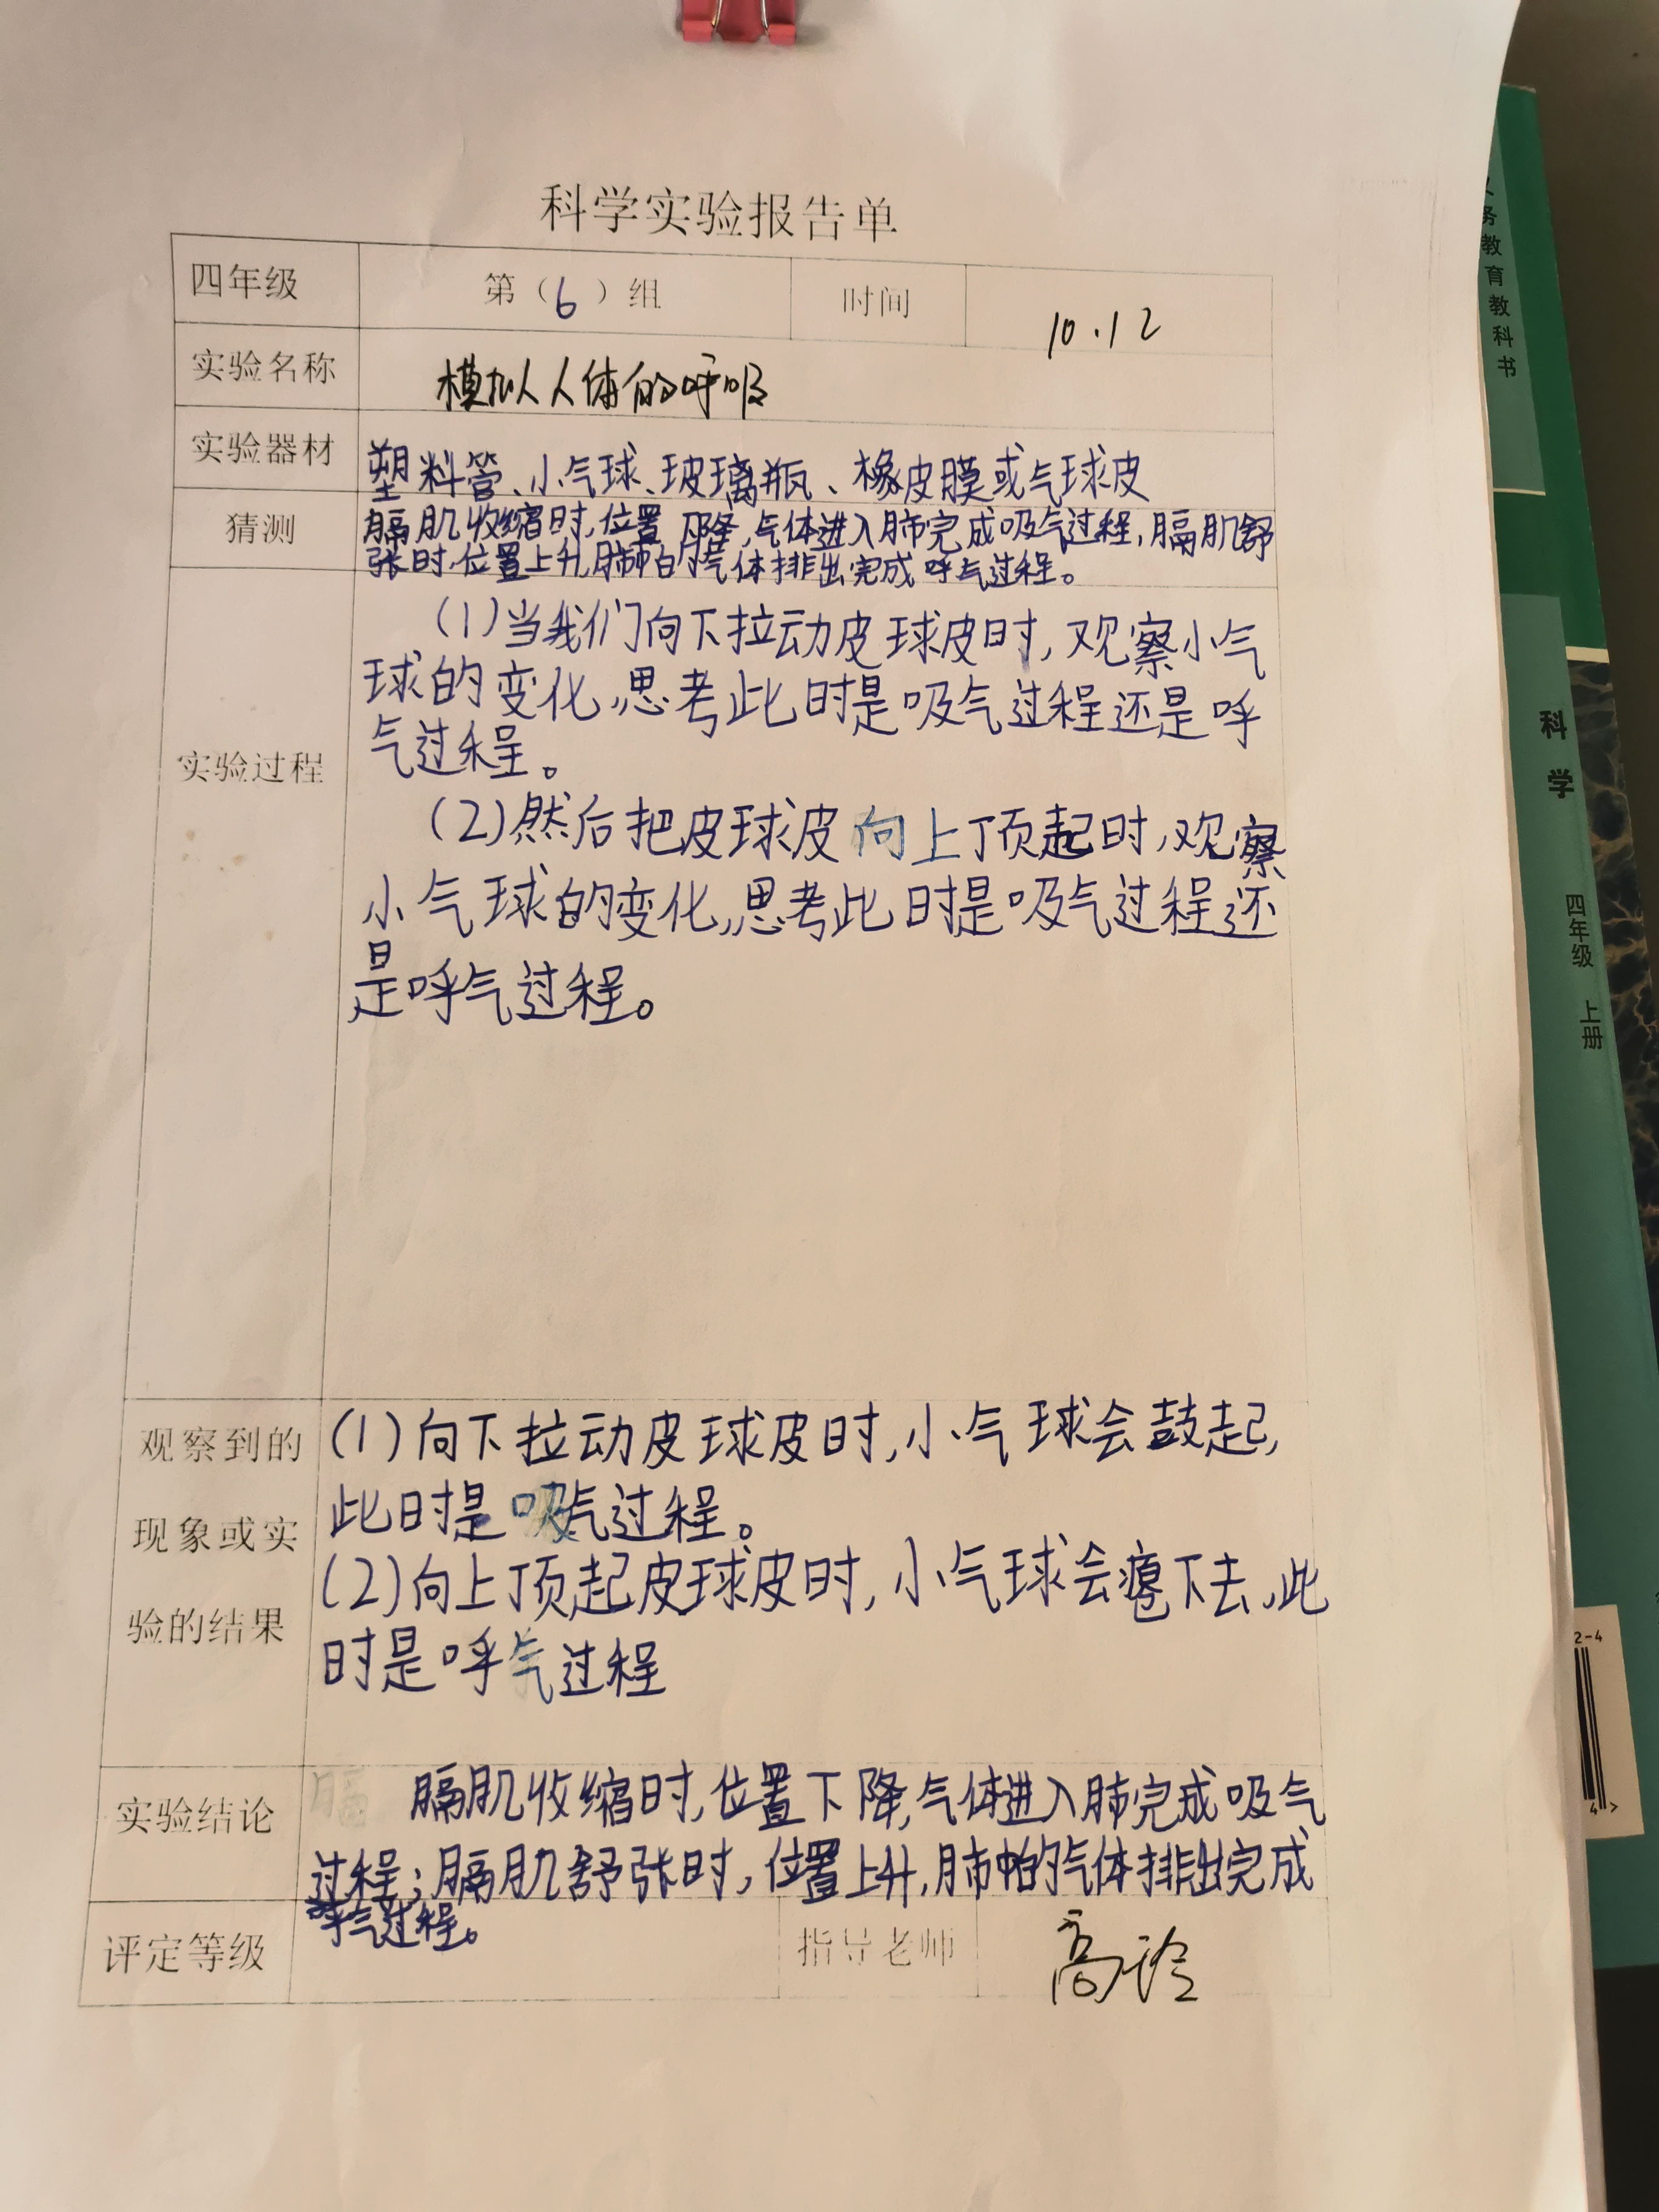 科学实验报告单
四年级 第（6）组 时间 10.12
实验名称 模拟人体的呼吸
实验器材 塑料管、小气球、玻璃瓶、橡皮膜或气球皮
猜测 膈肌收缩时,位置下降,气体进入肺完成吸气过程,膈肌舒
张时,位置上升,肺帕的气体排出完成呼气过程。
实验过程
(1)当我们向下拉动皮球皮时,观察小气
球的变化,思考此时是吸气过程还是呼
气过程。
(2)然后把皮球皮向上顶起时,观察
小气球的变化,思考此时是吸气过程还
是呼气过程。
观察到的
现象或实
验的结果
(1)向下拉动皮球皮时,小气球会鼓起,
此时是吸气过程。
(2)向上顶起皮球皮时,小气球会瘪下去,此
时是呼气过程
实验结论
膈 膈肌收缩时,位置下降,气体进入肺完成吸气
过程;膈肌舒张时,位置上升,肺帕的气体排出完成
呼气过程。
评定等级 指导老师 高玲
义务教育教科书
科学
四年级 上册
2-4
4>